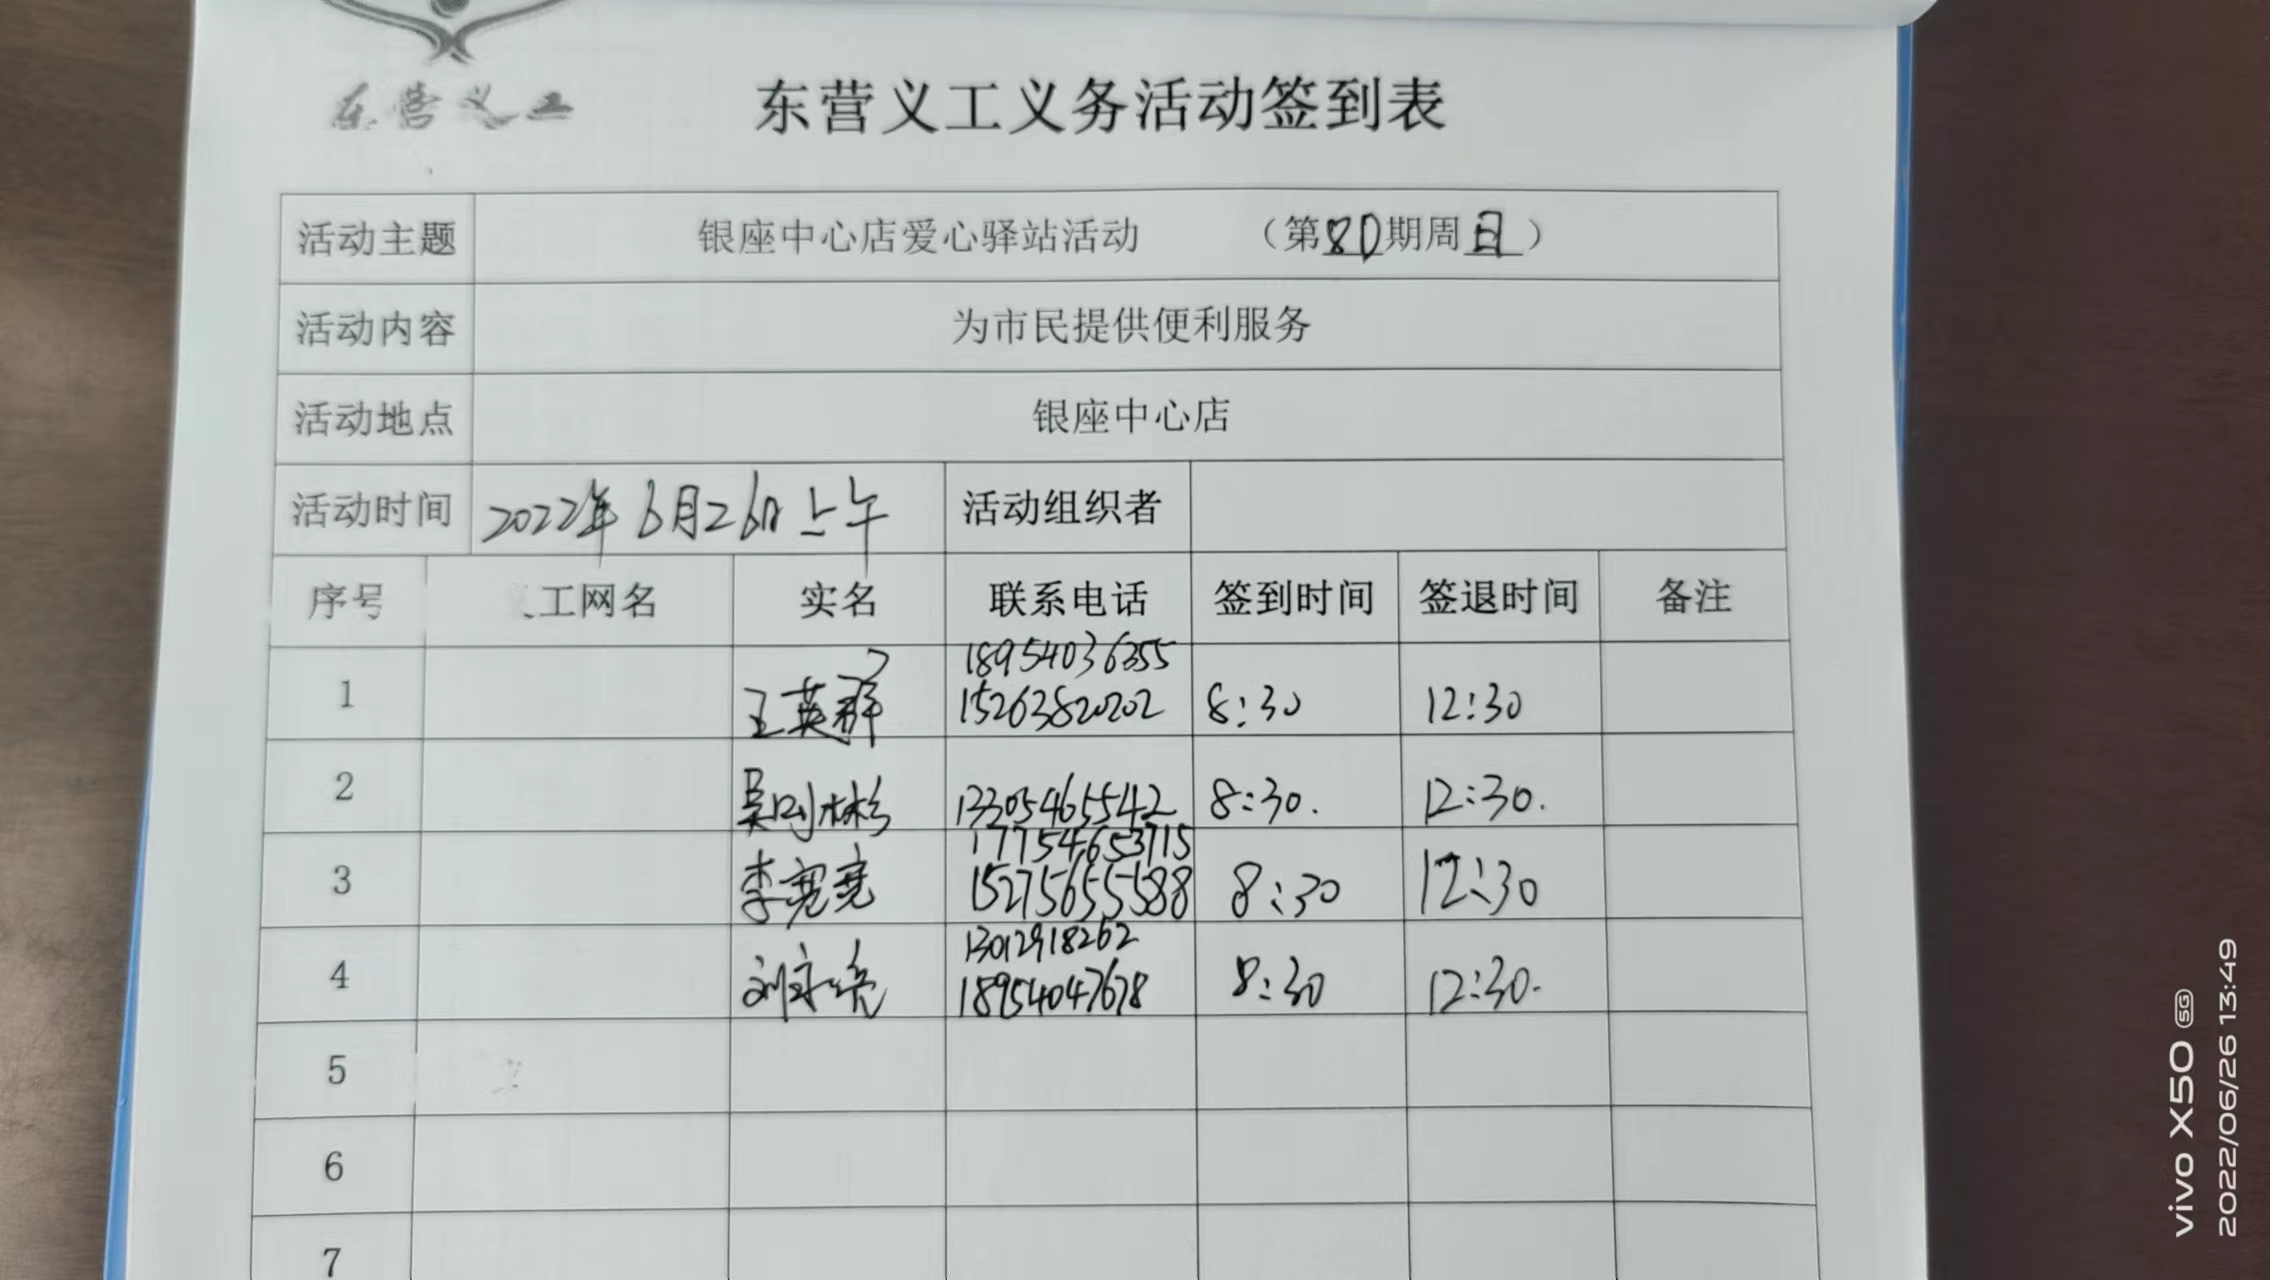 东营义工
东营义工义务活动签到表
活动主题 银座中心店爱心驿站活动 （第80期周日）
活动内容 为市民提供便利服务
活动地点 银座中心店
活动时间 2022年6月26日上午 活动组织者
序号 工网名 实名 联系电话 签到时间 签退时间 备注
18954036355
1 王英群 15263820202 8:30 12:30
2 吴刚彬 13305465542 8:30. 12:30.
17754653715
3 李宽亮 15275655588 8:30 12:30
13012918262
4 刘永亮 18954047678 8:30 12:30.
5
6
7
vivo X50 5G
2022/06/26 13:49